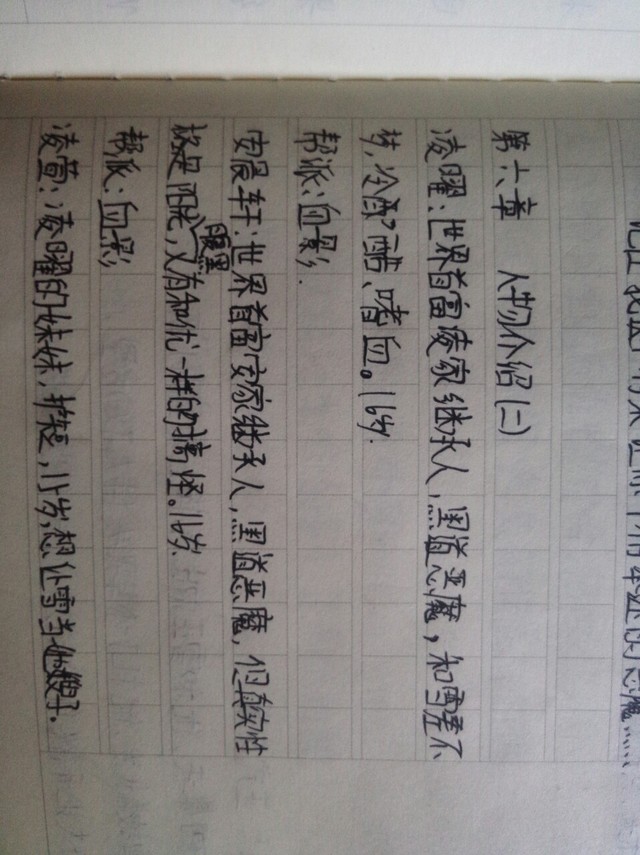 第六章 人物介绍(二)
凌曜:世界首富凌家继承人,黑道恶魔,和雪差不
梦,冷酷、嗜血。16岁.
帮派:血影.
安晨轩:世界首富安家继承人,黑道恶魔,但真实性
格是阳光,腹黑又有和优一样的搞怪。16岁.
帮派:血影
凌萱:凌曜的妹妹,15岁,想让雪当她嫂子.